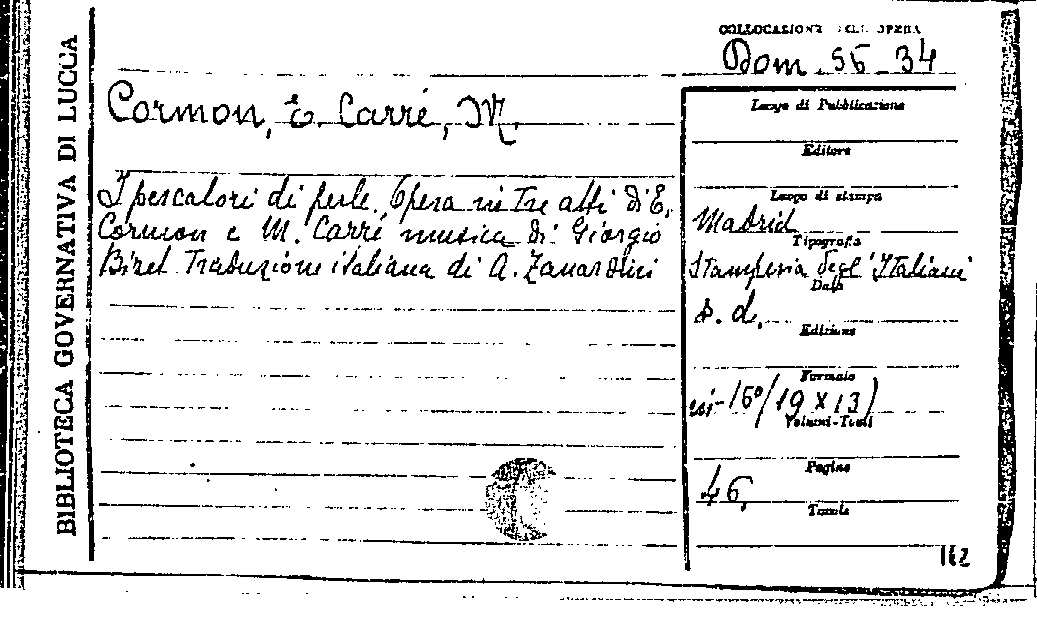 BIBLIOTECA GOVERNATIVA DI LUCCA
COLLOCAZIONE DELL'OPERA
Dom. 56-34
Cormon, E. Carré, M.
I pescatori di perle. Opera in tre atti di E.
Cormon e M. Carré musica di Giorgio
Bizet Traduzione italiana di A. Zanardini
Luogo di Pubblicazione
Editore
Luogo di stampa
Madrid
Tipografia
Stamperia degl'Italiani
Data
s. d.
Edizione
Formato
in-16°/19 x 13)
Volumi-Tomi
Pagine
46.
Tavole
112